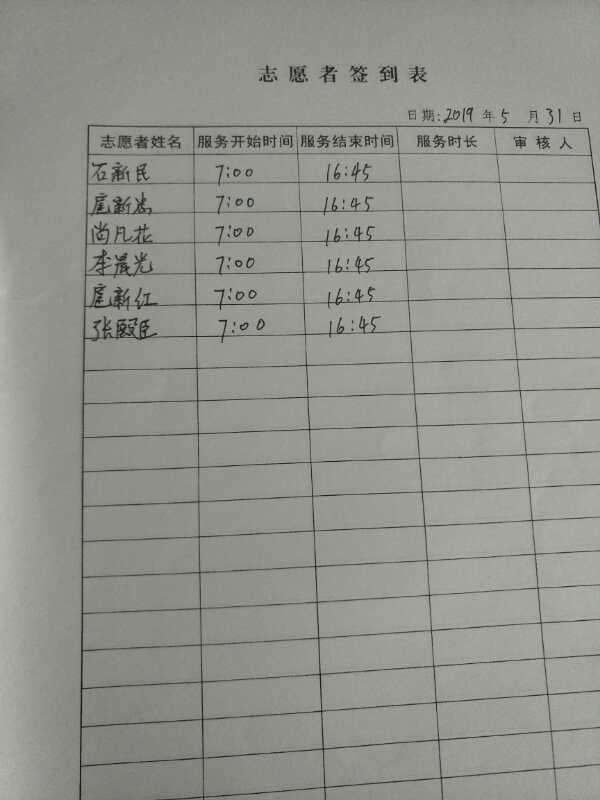 志愿者签到表
日期:2019年5月31日
志愿者姓名 服务开始时间 服务结束时间 服务时长 审核人
石新民 7:00 16:45
扈新岩 7:00 16:45
尚凡花 7:00 16:45
李晨光 7:00 16:45
扈新红 7:00 16:45
张殿臣 7:00 16:45